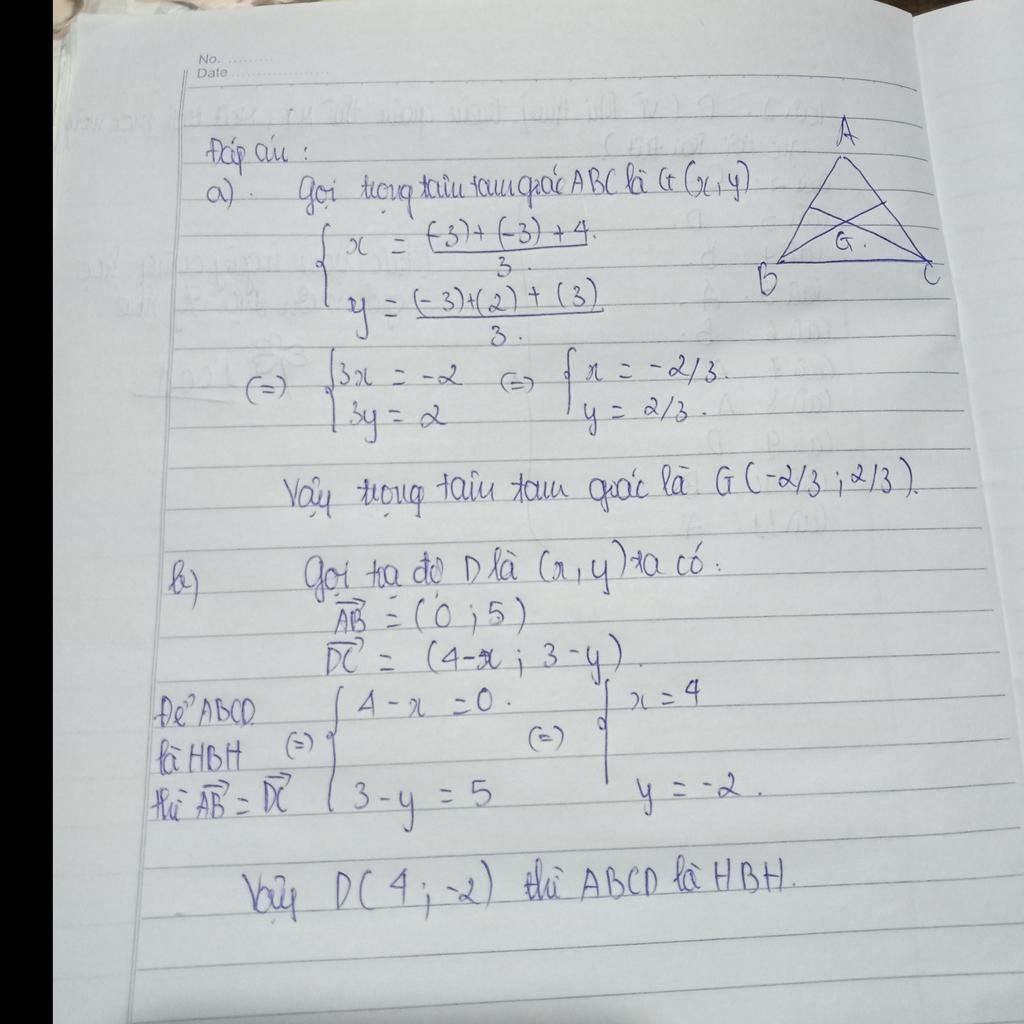 No. ..........
Date ....................
Đáp án :
a). Gọi trọng tâm tam giác ABC là G(x,y)
{ x = (-3)+(-3)+4 / 3.
{ y = (-3)+(2)+(3) / 3.
(=) { 3x = -2 (=) { x = -2/3.
{ 3y = 2 { y = 2/3.
Vậy trọng tâm tam giác là G(-2/3 ; 2/3).
A
G.
B C
b) Gọi tọa độ D là (x,y) ta có:
\overrightarrow{AB} = (0 ; 5)
\overrightarrow{DC} = (4-x ; 3-y).
Để ABCD
là HBH
thì \overrightarrow{AB} = \overrightarrow{DC}
(=) { 4-x = 0. (=) { x = 4
{ 3-y = 5 { y = -2.
Vậy D(4 ; -2) thì ABCD là HBH.